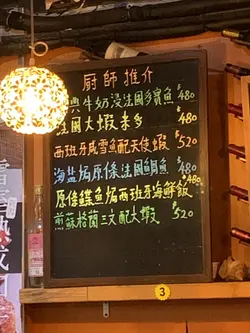 厨師推介
典牛奶浸法國多寶魚 $480
法國大蝦來多 $480
西班牙咸雪魚配天使蝦 $520
海鹽焗原條法國鯛魚 $480
原條鰈魚焗西班牙海鮮飯 $480
煎蘇格蘭三文配大蝦 $520
3